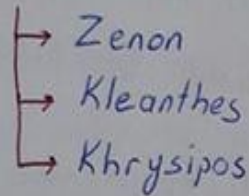 Zenon
Kleanthes
Khrysipos